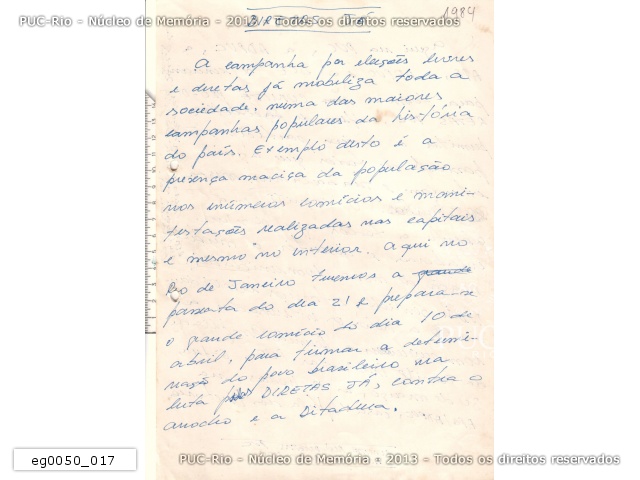 PUC-Rio - Núcleo de Memória - 2013 - Todos os direitos reservados
1984
DIRETAS JÁ
A campanha por eleições livres
e diretas já mobiliza toda a
sociedade, numa das maiores
campanhas populares da história
do país. Exemplo disto é a
presença maciça da população
nos inúmeros comícios e mani-
festações realizadas nas capitais
e mesmo no interior. Aqui no
Rio de Janeiro tivemos a grande
passeata do dia 21 e prepara-se
o grande comício do dia 10 de
abril, para firmar a determi-
nação do povo brasileiro na
luta pelas DIRETAS JÁ, contra o
arrocho e a Ditadura.
PUC-Rio - Núcleo de Memória - 2013 - Todos os direitos reservados
eg0050_017